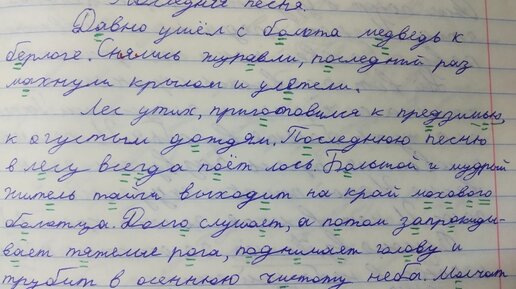 Последняя песня.
Давно ушёл с болота медведь к
берлоге. Снялись журавли, последний раз
махнули крылом и улетели.
Лес утих, приготовился к предзимью,
к густым дождям. Последнюю песню
в лесу всегда поёт лось. Большой и мудрый
житель тайги выходит на край мохового
болотца. Долго слушает, а потом запрокиды-
вает тяжёлые рога, поднимает голову и
трубит в осеннюю чистоту неба. Молчат